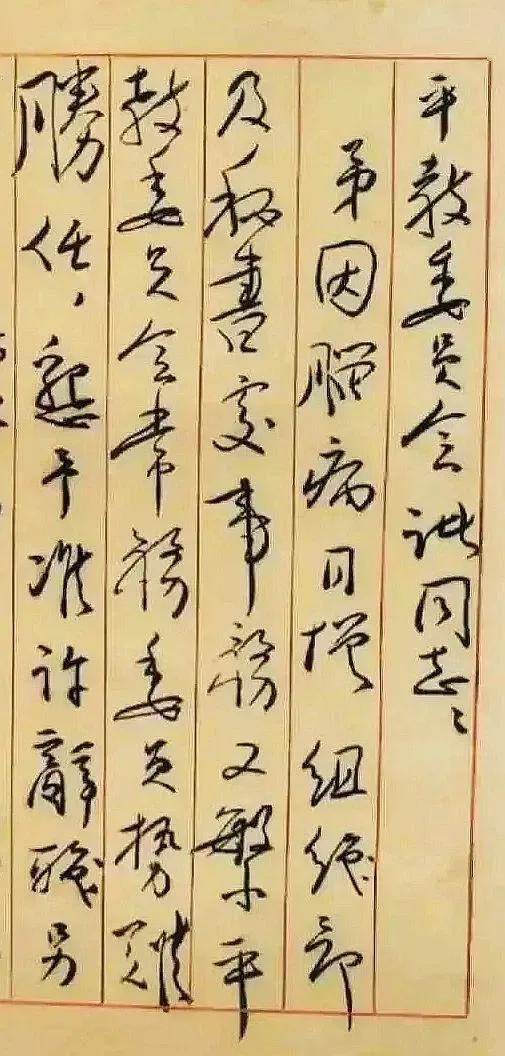 平教委员会诸同志：
弟因脑病日增 组织部
及秘書处事務又繁 平
教委员会常務委员势難
勝任，懇予准许辭職 另